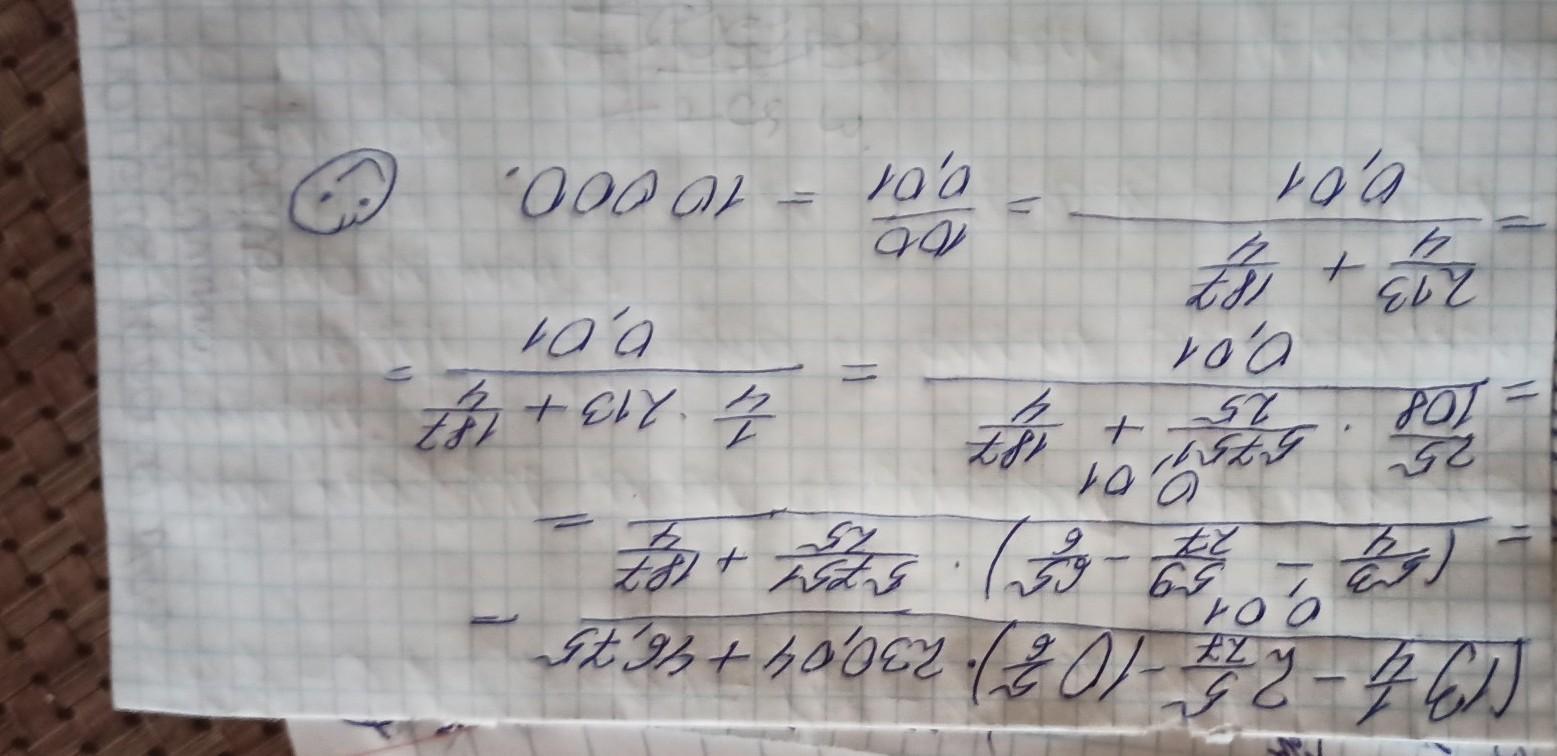 (13 1/4 − 2 5/27 − 10 5/6) · 230,04 + 46,75 / 0,01 =
= (53/4 − 59/27 − 65/6) · 5751/25 + 187/4 / 0,01 =
= 25/108 · 5751/25 + 187/4 / 0,01 = 1/4 · 213 + 187/4 / 0,01 =
= 213/4 + 187/4 / 0,01 = 100/0,01 = 10 000.